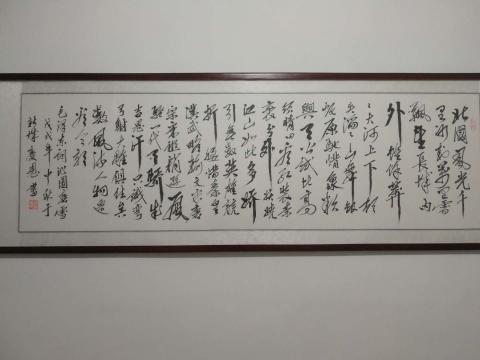 北國風光千
里冰封萬里雪
飄望長城内
外惟餘莽
々大河上下頓
失滔々山舞銀
蛇原馳蠟象欲
與天公試比高
須晴日看紅裝素
裹分外妖嬈
江山如此多嬌
引無數英雄競
折腰惜秦皇
漢武略輸文采唐
宗宋祖稍遜風
騷一代天驕成
吉思汗只識彎
弓射大雕俱往矣
數風流人物還
看今朝
毛澤東詞沁園春雪
戊戌年中秋于
書